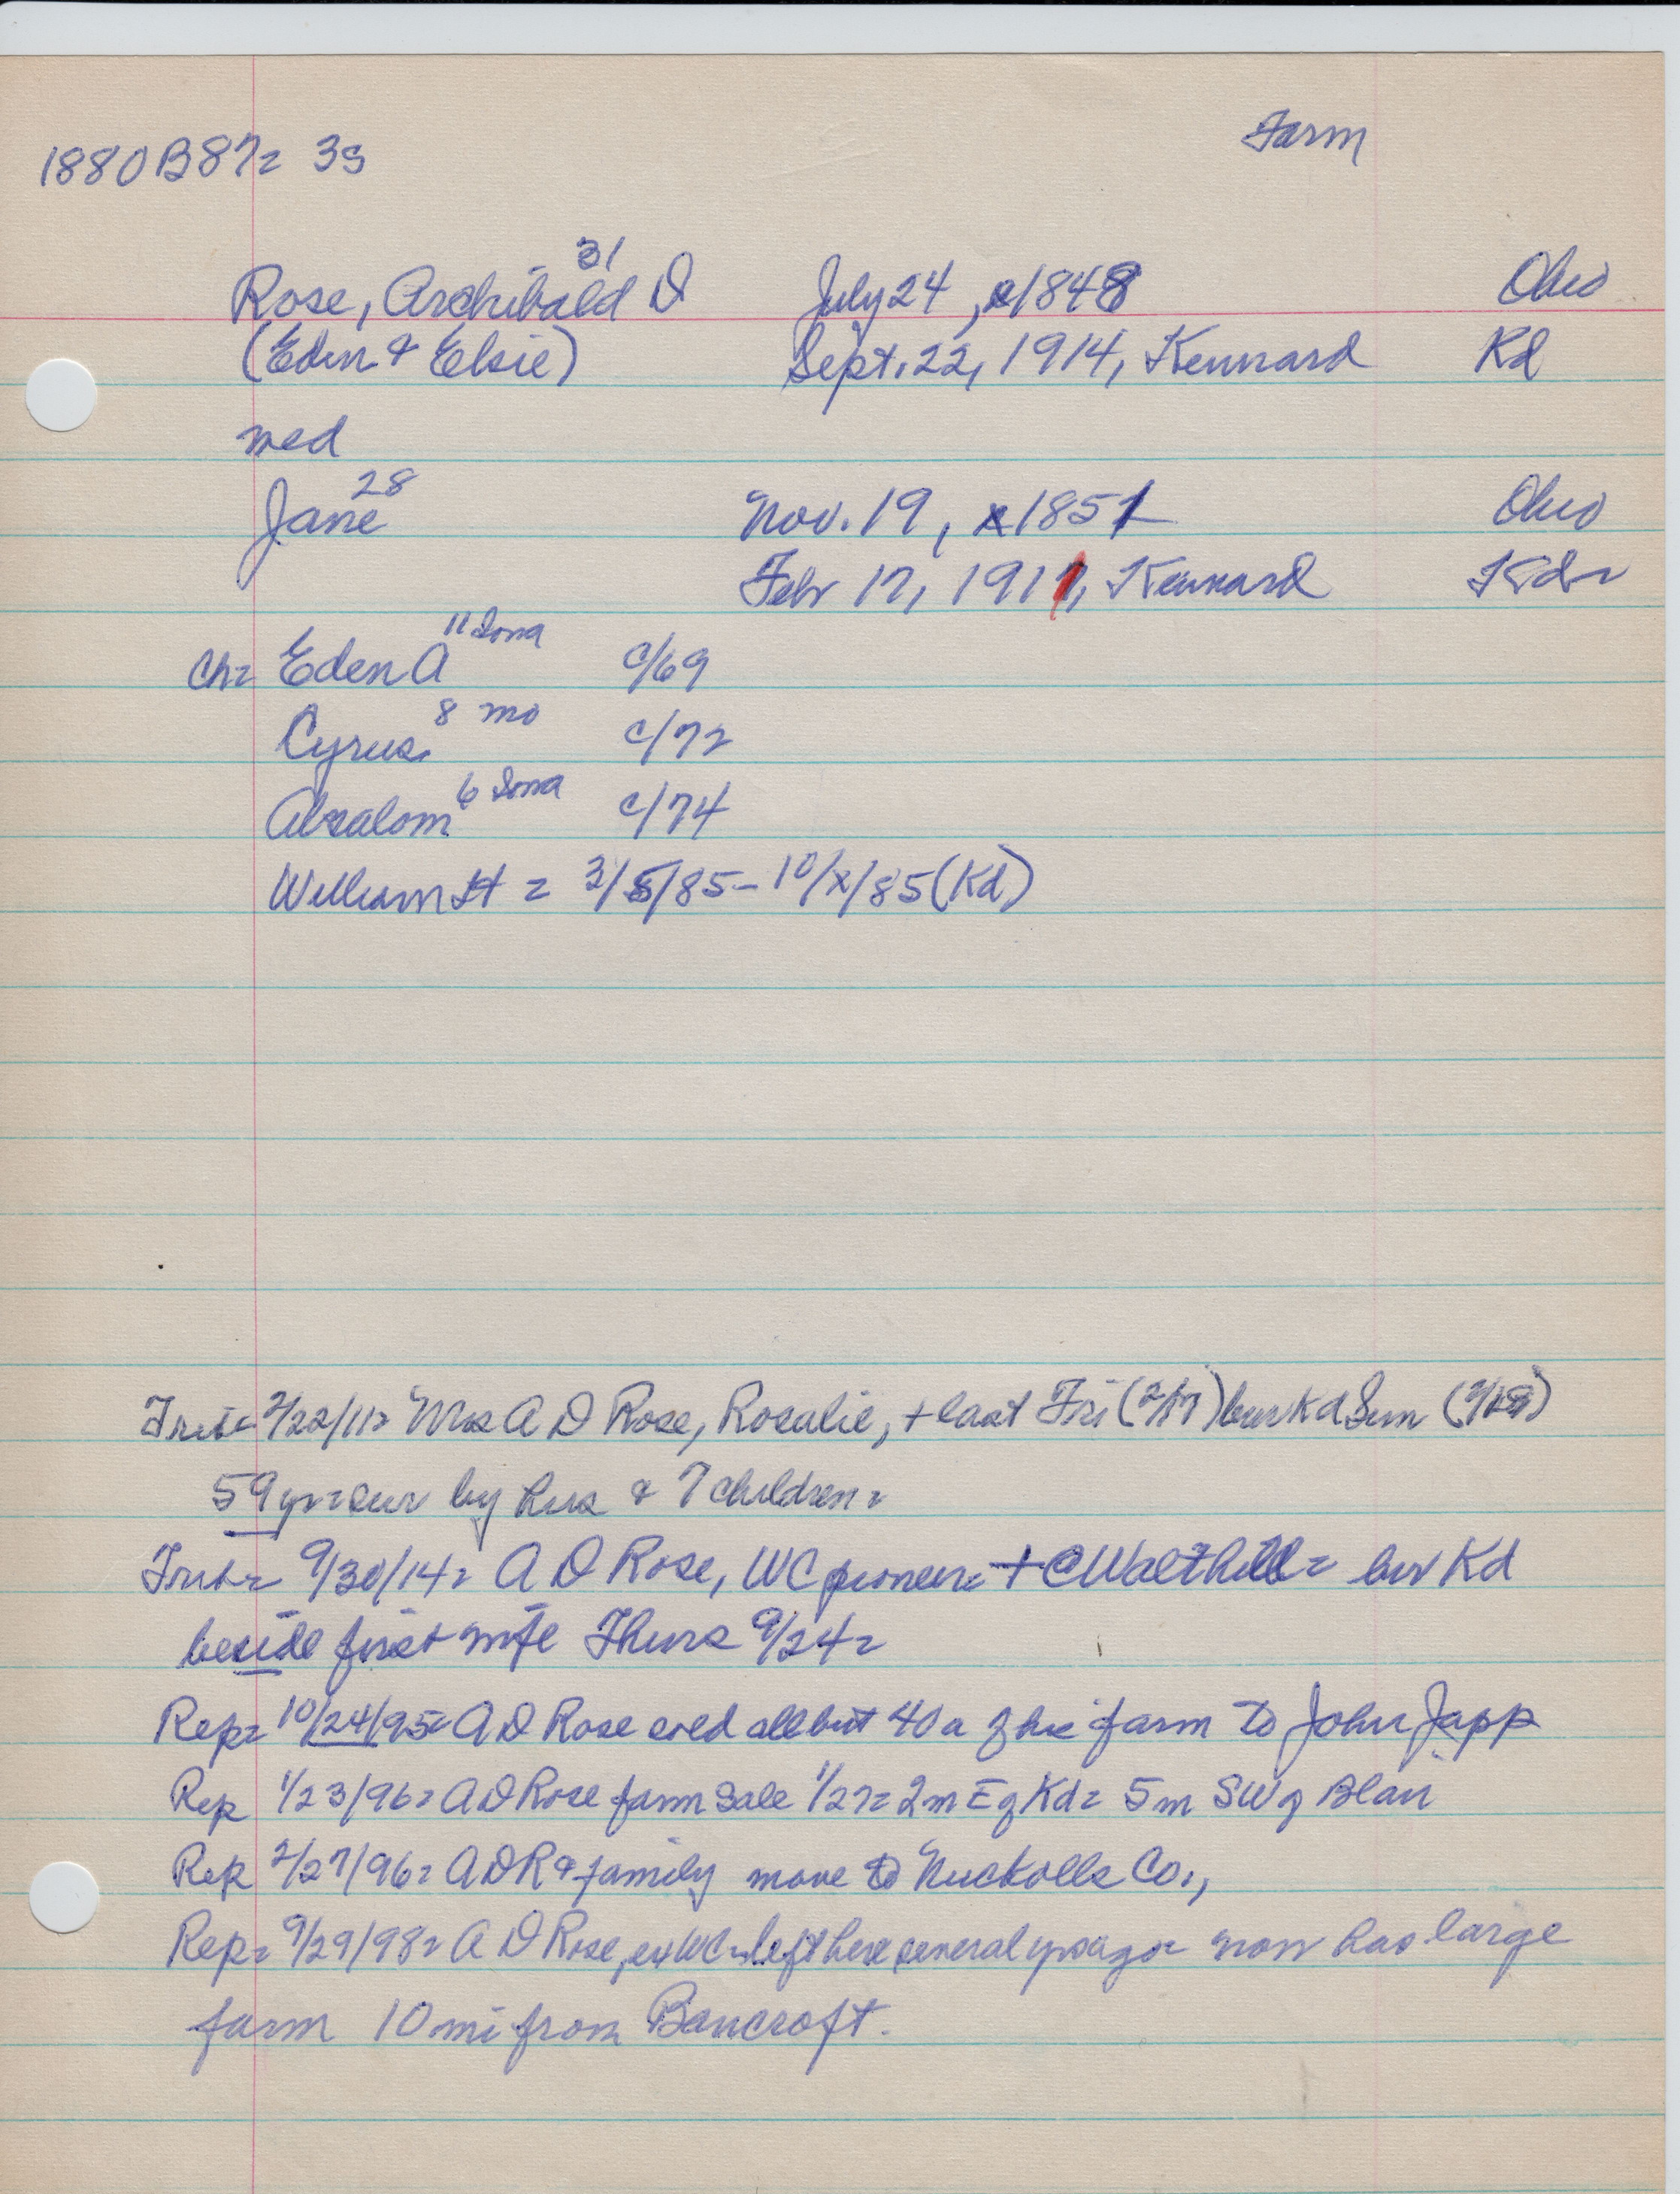 Farm
1880 B87= 3s
31
Rose, Archibald D July 24, c1848 Ohio
(Eden & Elsie) Sept. 22, 1914, Kennard Kd
med
28
Jane Nov. 19, 1851 Ohio
Feb 17, 1911, Kennard Kd=
11 Iowa
Ch= Eden A c/69
8 mo
Cyrus c/72
6 Iowa
Absalom c/74
William H = 3/5/85 - 10/x/85 (Kd)
Trib= 2/22/11= Mrs A D Rose, Rosalie, + last Fri (2/17) bur Kd Sun (2/19)
59 yr= sur by hus & 7 children=
Trib= 9/30/14= A D Rose, WC pioneer= + @ Walthill= bur Kd
beside first wife Thurs 9/24=
Rep= 10/24/95= A D Rose sold all but 40 a of his farm to John Japp
Rep 1/23/96= A D Rose farm sale 1/27= 2 m E of Kd= 5 m SW of Blair
Rep 2/27/96= A D R & family move to Nuckolls Co.,
Rep= 9/29/98= A D Rose, ex WC= left here several yrs ago= now has large
farm 10 mi from Bancroft.